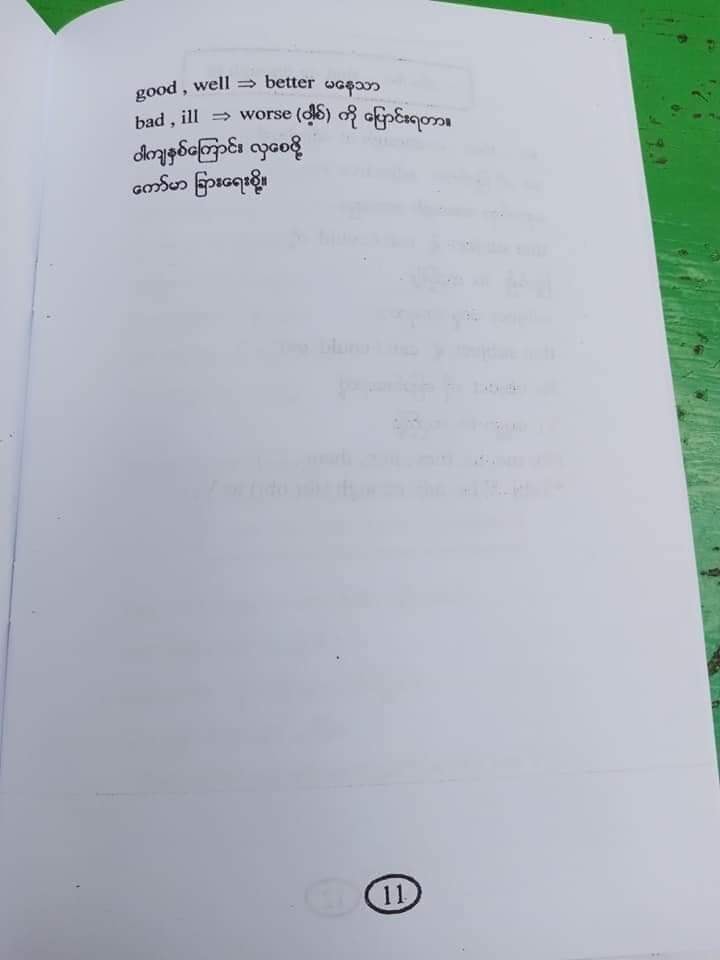 good , well ⇒ better မနေသာ
bad , ill ⇒ worse (ဝါ့စ်) ကို ပြောင်းရတာ။
ဝါကျနှစ်ကြောင်း လှစေဖို့
ကော်မာ ခြားရေးစို့။
11